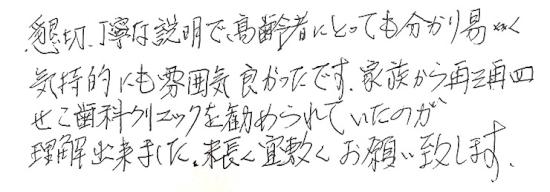 懇切、丁寧な説明で、高齢者にとっても分かり易く
気持的にも雰囲気良かったです。家族から再三再四
せこ歯科クリニックを勧められていたのが
理解出来ました。末長く宜敷くお願い致します。